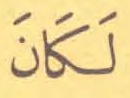 لَكَانَ